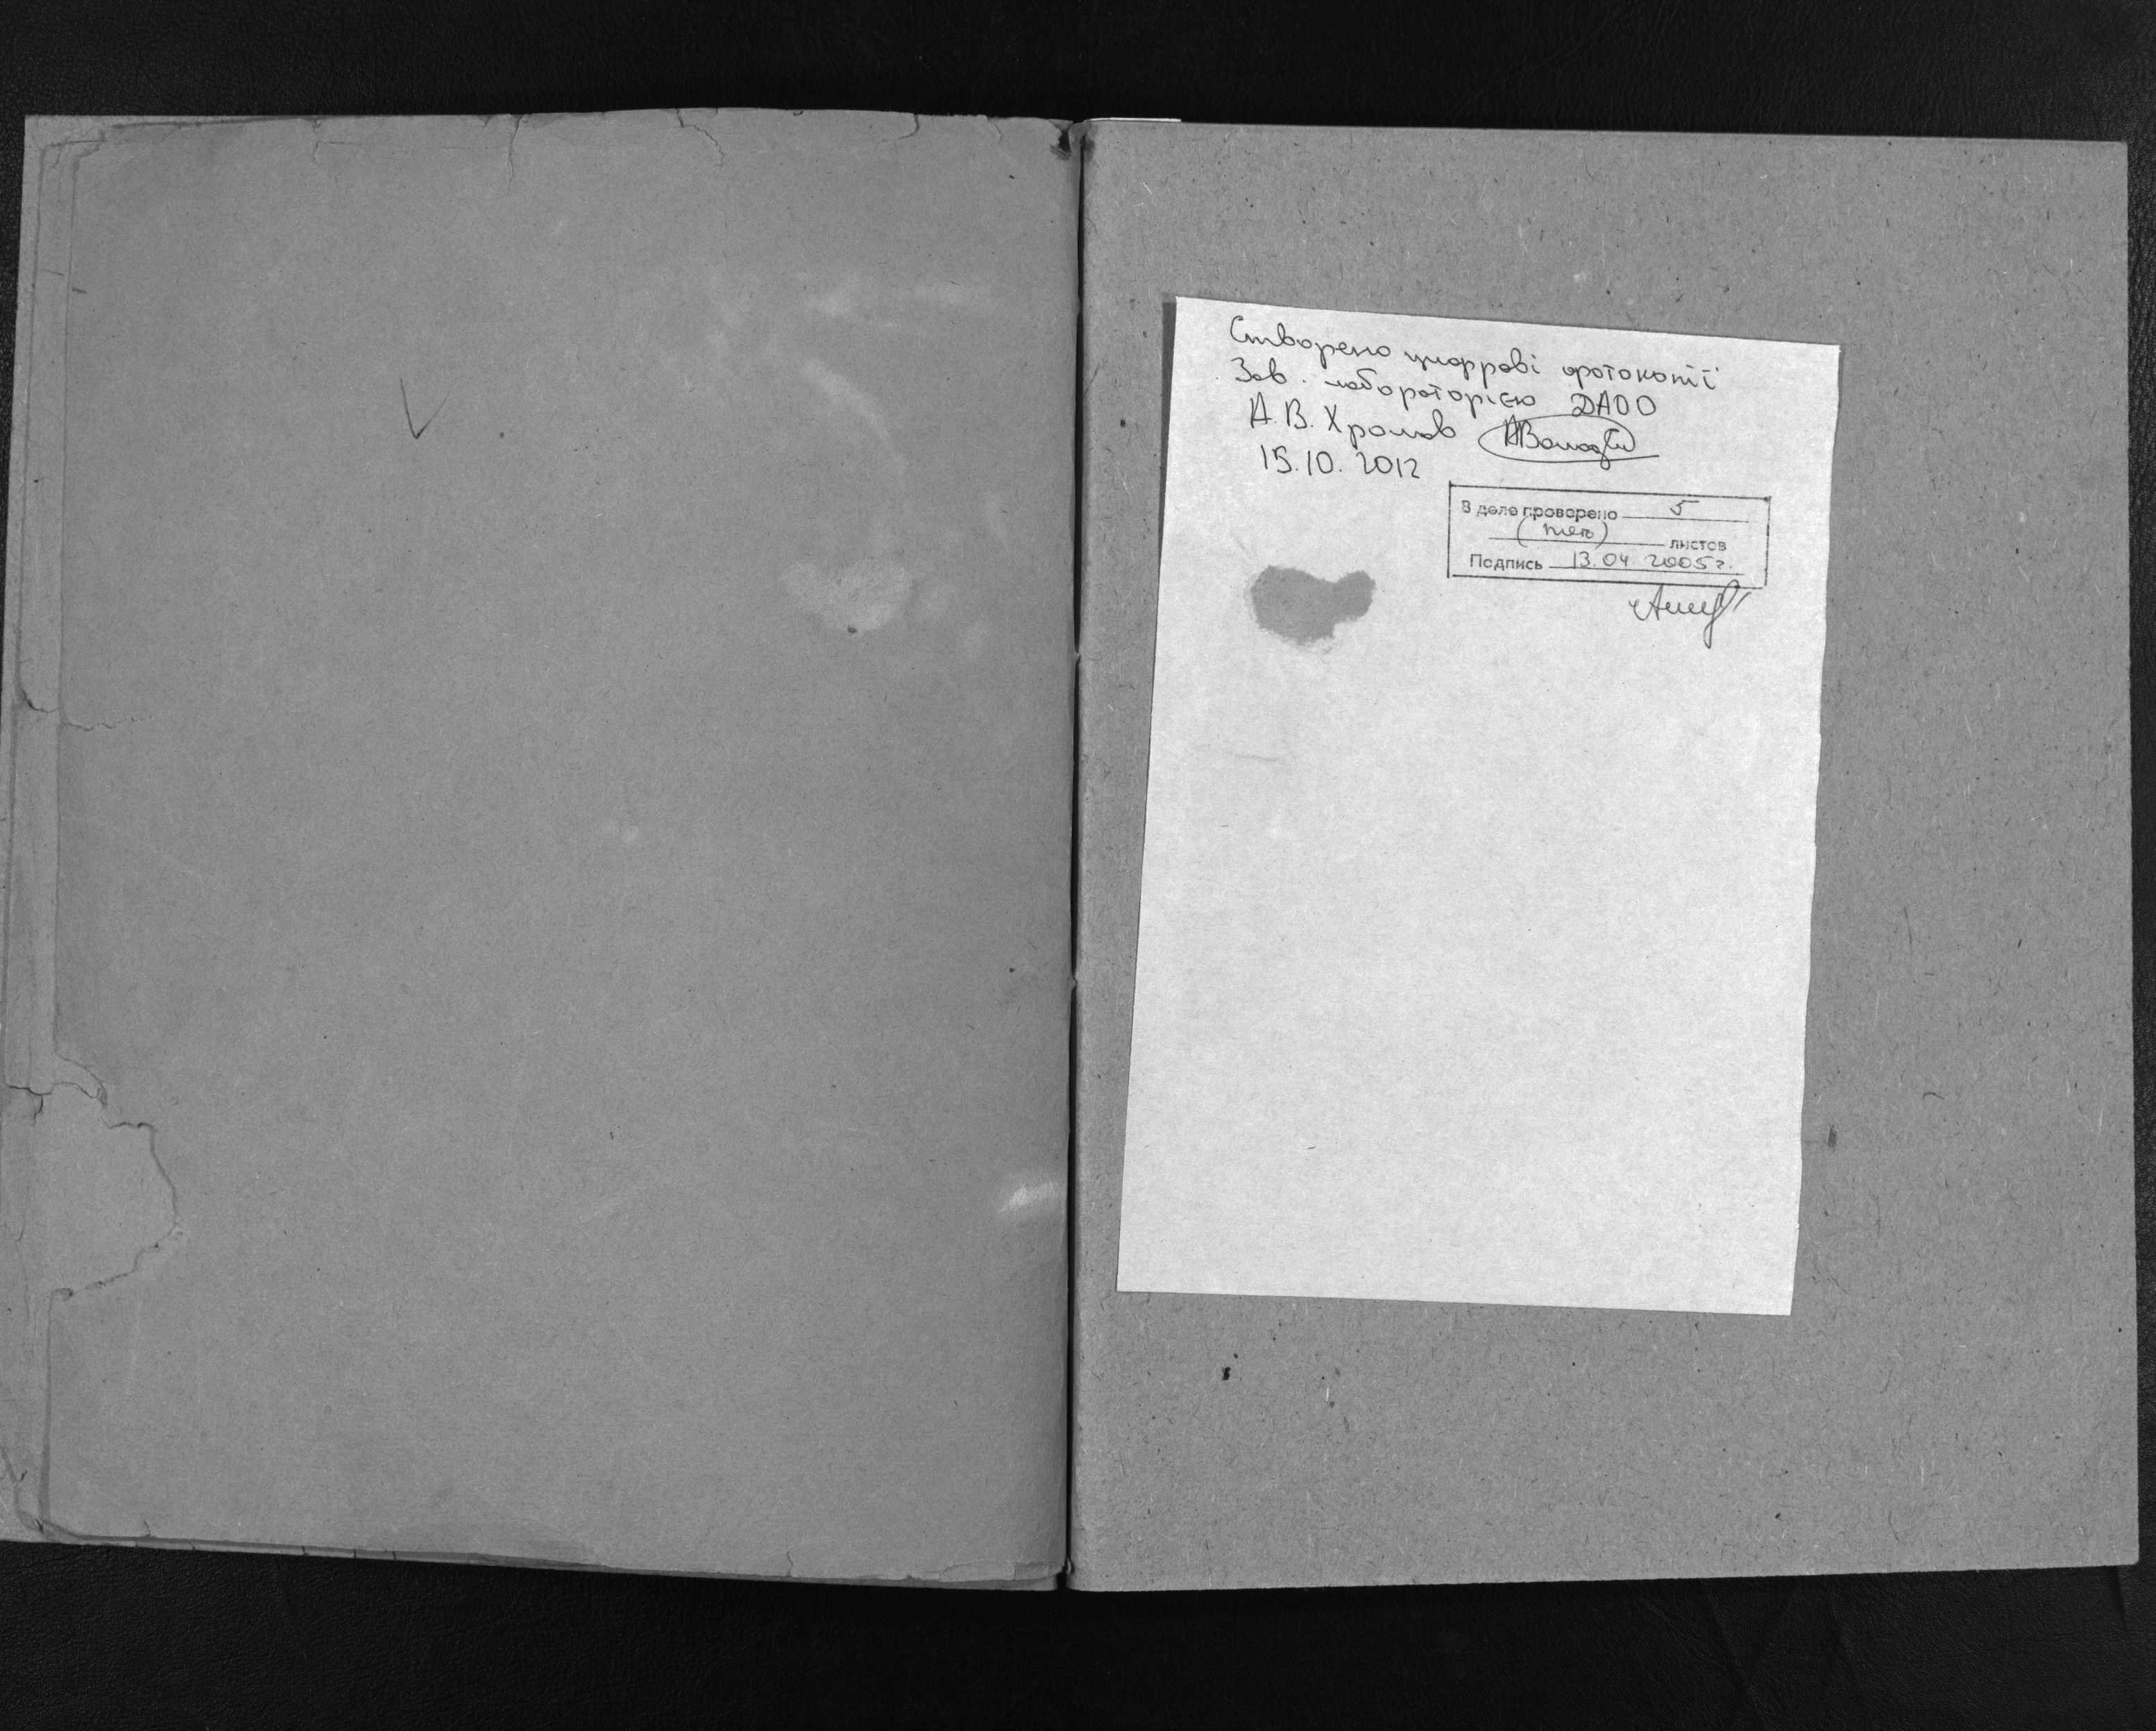 Створено цифрові фотокопії
Зав. лабораторією ДАОО
А.В. Хромов
15.10.2012
В деле проверено 5
(пять) листов
Подпись 13.04 2005г.